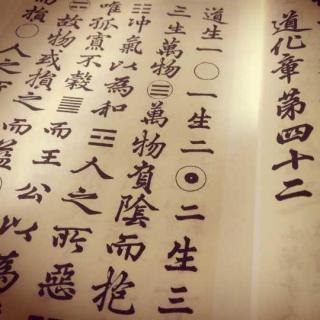 道化章第四十二
道生一○一生二☉二生三
三生萬物☰萬物負陰而抱
沖氣以為和☲人之所惡
唯孤寡不穀䷁而王公以為
故物或損之而益
而損○人之